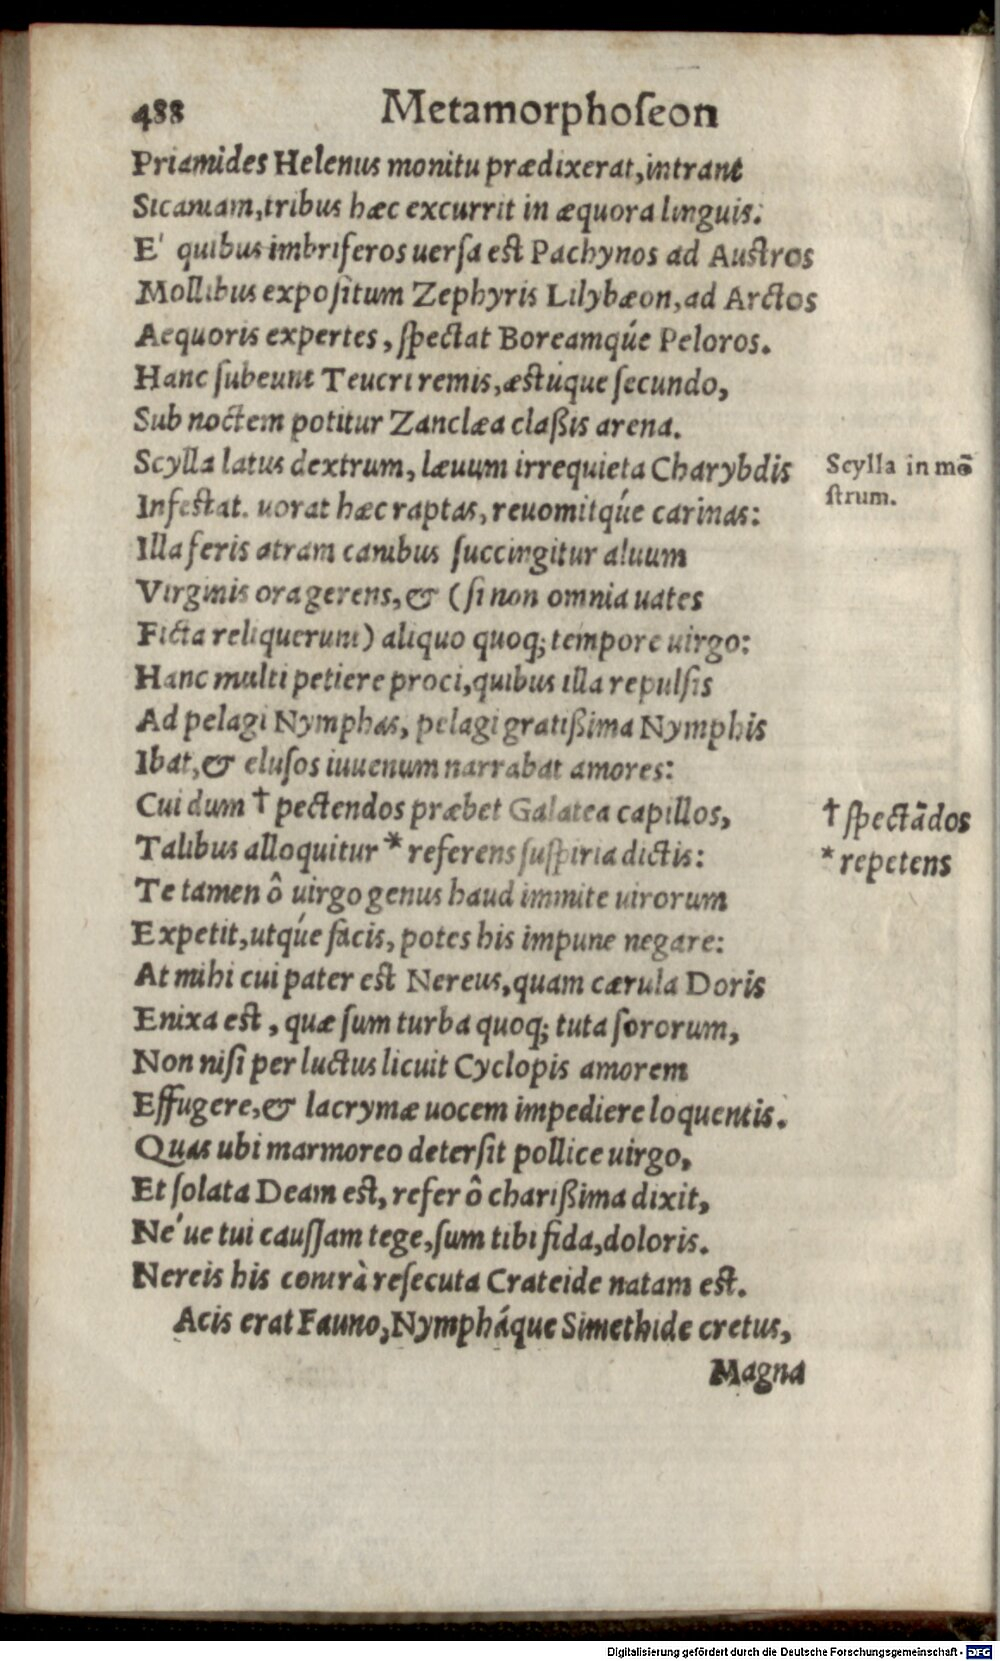 488 Metamorphoſeon
Priamides Helenus monitu prædixerat,intrant
Sicaniam,tribus hæc excurrit in æquora linguis:
E' quibus imbriferos uerſa est Pachynos ad Austros
Mollibus expoſitum Zephyris Lilybæon,ad Arctos
Aequoris expertes, ſpectat Boreamqúe Peloros.
Hanc ſubeunt Teucri remis,æstúque ſecundo,
Sub noctem potitur Zanclæa claßis arena.
Scylla latus dextrum, læuum irrequieta Charybdis
Scylla in mō
ſtrum.
Infestat. uorat hæc raptas, reuomitqúe carinas:
Illa feris atram canibus ſuccingitur aluum
Virginis ora gerens,& (ſi non omnia uates
Ficta reliquerunt) aliquo quoq; tempore uirgo:
Hanc multi petiere proci,quibus illa repulſis
Ad pelagi Nymphas, pelagi gratißima Nymphis
Ibat,& eluſos iuuenum narrabat amores:
Cui dum † pectendos præbet Galatea capillos,
† ſpectādos
Talibus alloquitur * referens ſuſpiria dictis:
* repetens
Te tamen ô uirgo genus haud immite uirorum
Expetit,utqúe facis, potes his impune negare:
At mihi cui pater est Nereus,quam cærula Doris
Enixa est, quæ ſum turba quoq; tuta ſororum,
Non niſi per luctus licuit Cyclopis amorem
Effugere,& lacrymæ uocem impediere loquentis.
Quas ubi marmoreo deterſit pollice uirgo,
Et ſolata Deam est, refer ô charißima dixit,
Ne´ue tui cauſſam tege,ſum tibi fida,doloris.
Nereis his contrà reſecuta Crateide natam est.
Acis erat Fauno,Nymphá́que Simethide cretus,
Magna
Digitalisierung gefördert durch die Deutsche Forschungsgemeinschaft - DFG